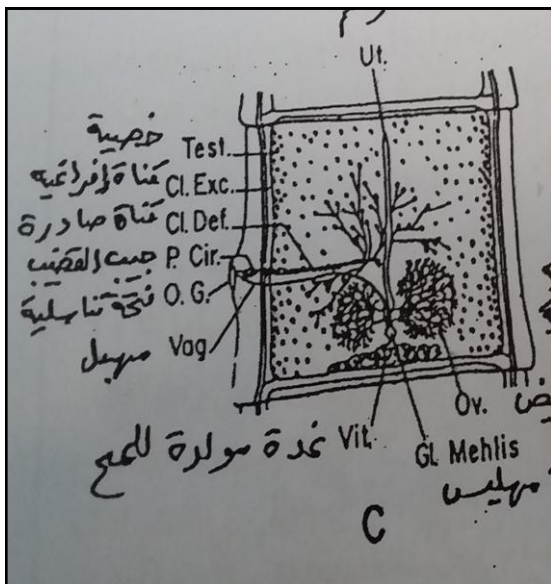 رحم
Ut.
خصية Test.
قناة إفراغية Cl. Exc.
قناة صادرة Cl. Def.
جيب القضيب P. Cir.
فتحة تناسلية O. G.
مهبل Vag
غدة مولدة للمح Vit.
Gl. Mehlis
Ov.
مهليس
C